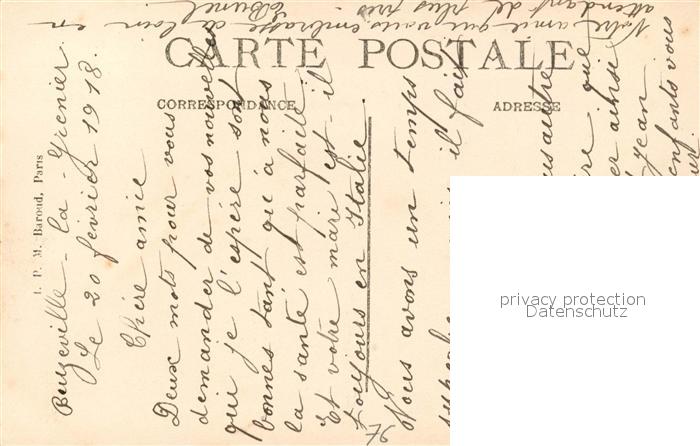 CARTE POSTALE
CORRESPONDANCE
ADRESSE
I. P. M. Baroud, Paris
Beuzeville-la-Grenier
Le 20 février 1918.
Chère amie
Deux mots pour vous
demander de vos nouvelles
que je l'espère sont
bonnes tant qu'à nous
la santé est parfaite
Et votre mari est-il
toujours en Italie.
Nous avons un temps
superbe il fait
autre
que
ainsi
Jean
enfants vous
Votre amie qui vous embrasse de loin en
attendant de plus près
privacy protection
Datenschutz